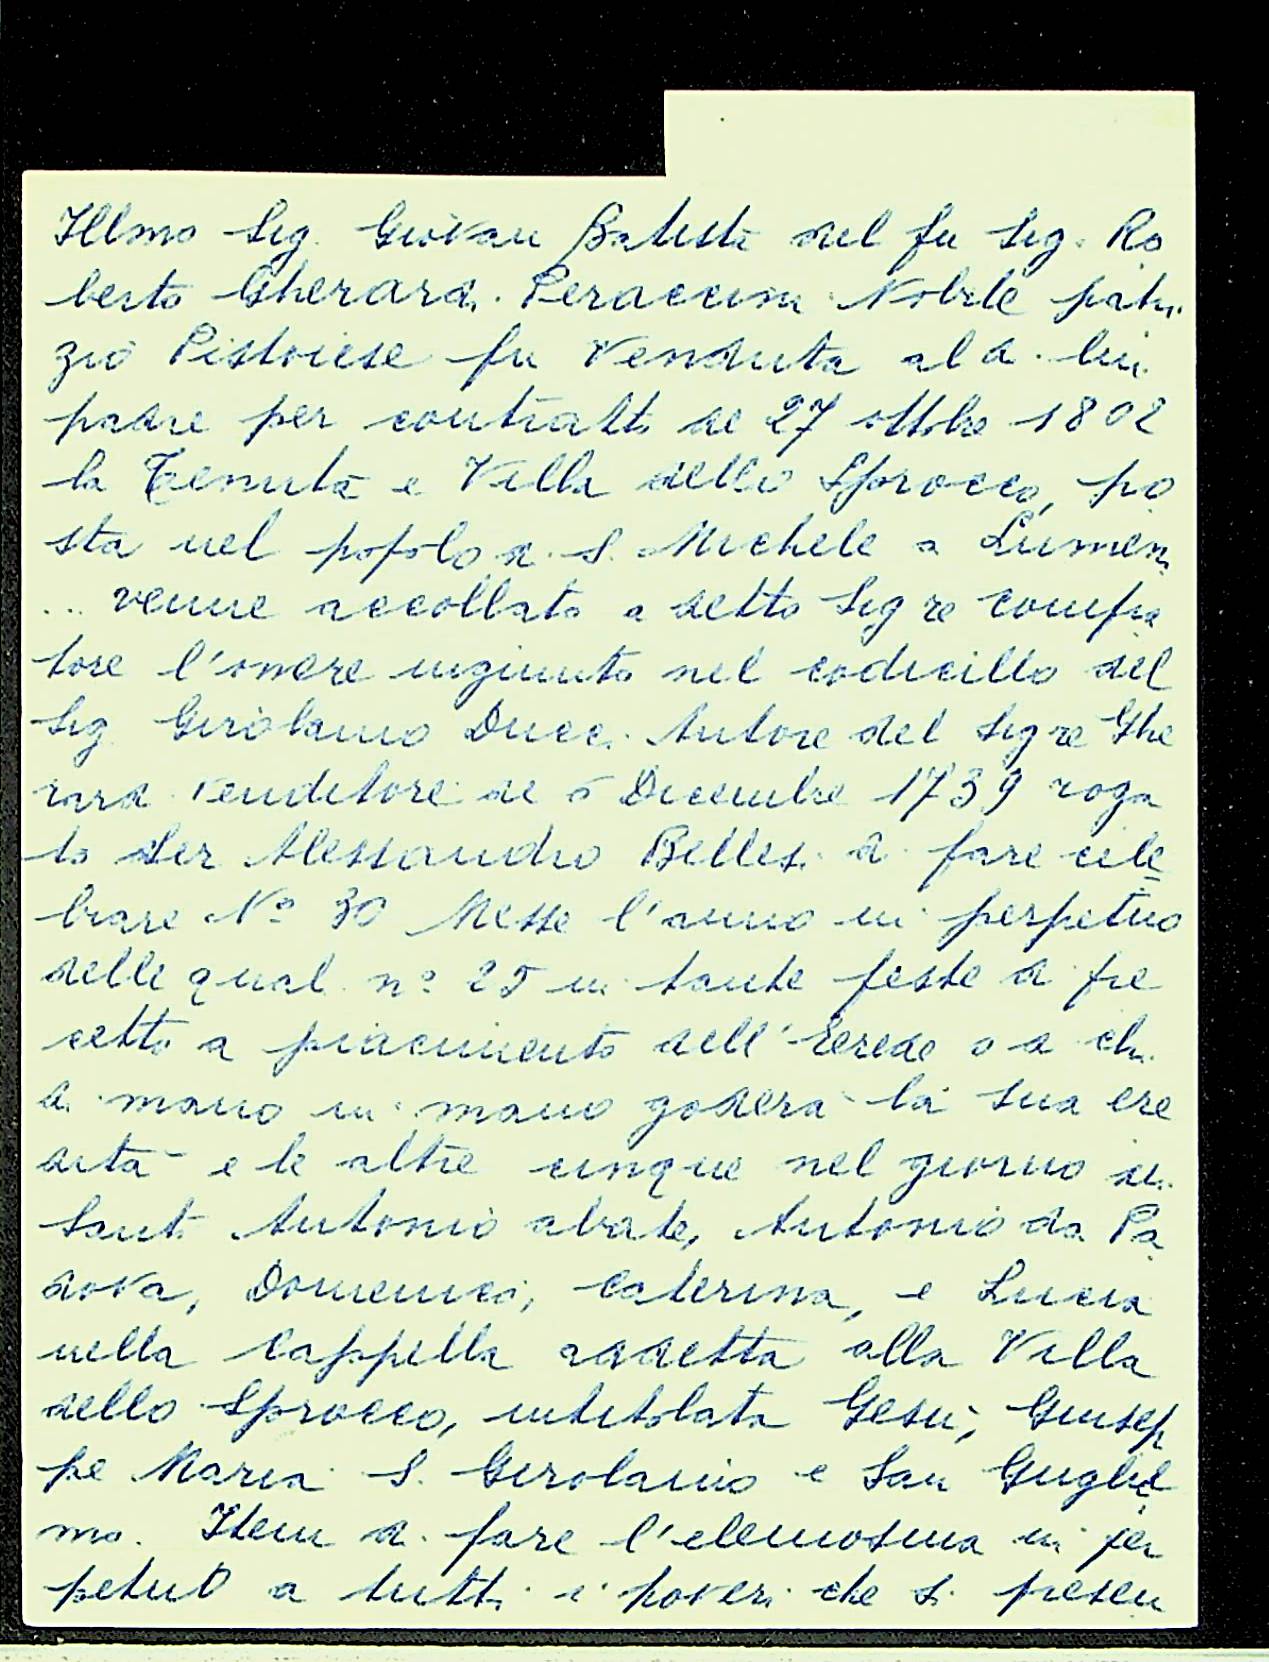 Illmo Sig. Giovan Batista del fu Sig. Ro
berto Gherardi Peraccini Nobile patri
zio Pistoiese fu venduta al di lui
padre per contratto de 27 ottobre 1802
la Tenuta e Villa dello Sprocco, po
sta nel popolo di S. Michele a Lumen
... venne accollato a detto Sigre compra
tore l'onere ingiunto nel codicillo del
Sig. Girolamo Ducci Autore del Sigre Ghe
rardi venditore de 5 Dicembre 1739 roga
to Ser Alessandro Bellesi di fare cele
brare No 30 Messe l'anno in perpetuo
delle quali no 25 in tante feste di pre
cetto a piacimento dell'Erede o di chi
di mano in mano goderà la sua ere
dità e le altre cinque nel giorno di
Santi Antonio abate, Antonio da Pa
dova, Domenico, Caterina, e Lucia
nella Cappella addetta alla Villa
dello Sprocco, intitolata Gesù, Giusep
pe Maria S. Girolamo e San Gugliel
mo. Item di fare l'elemosina in per
petuo a tutti i poveri che si presen